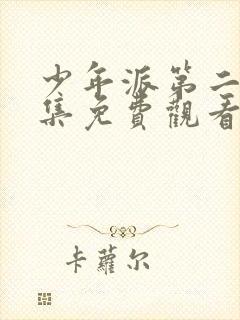 少年派第二
集免費觀看
卡蘿尔